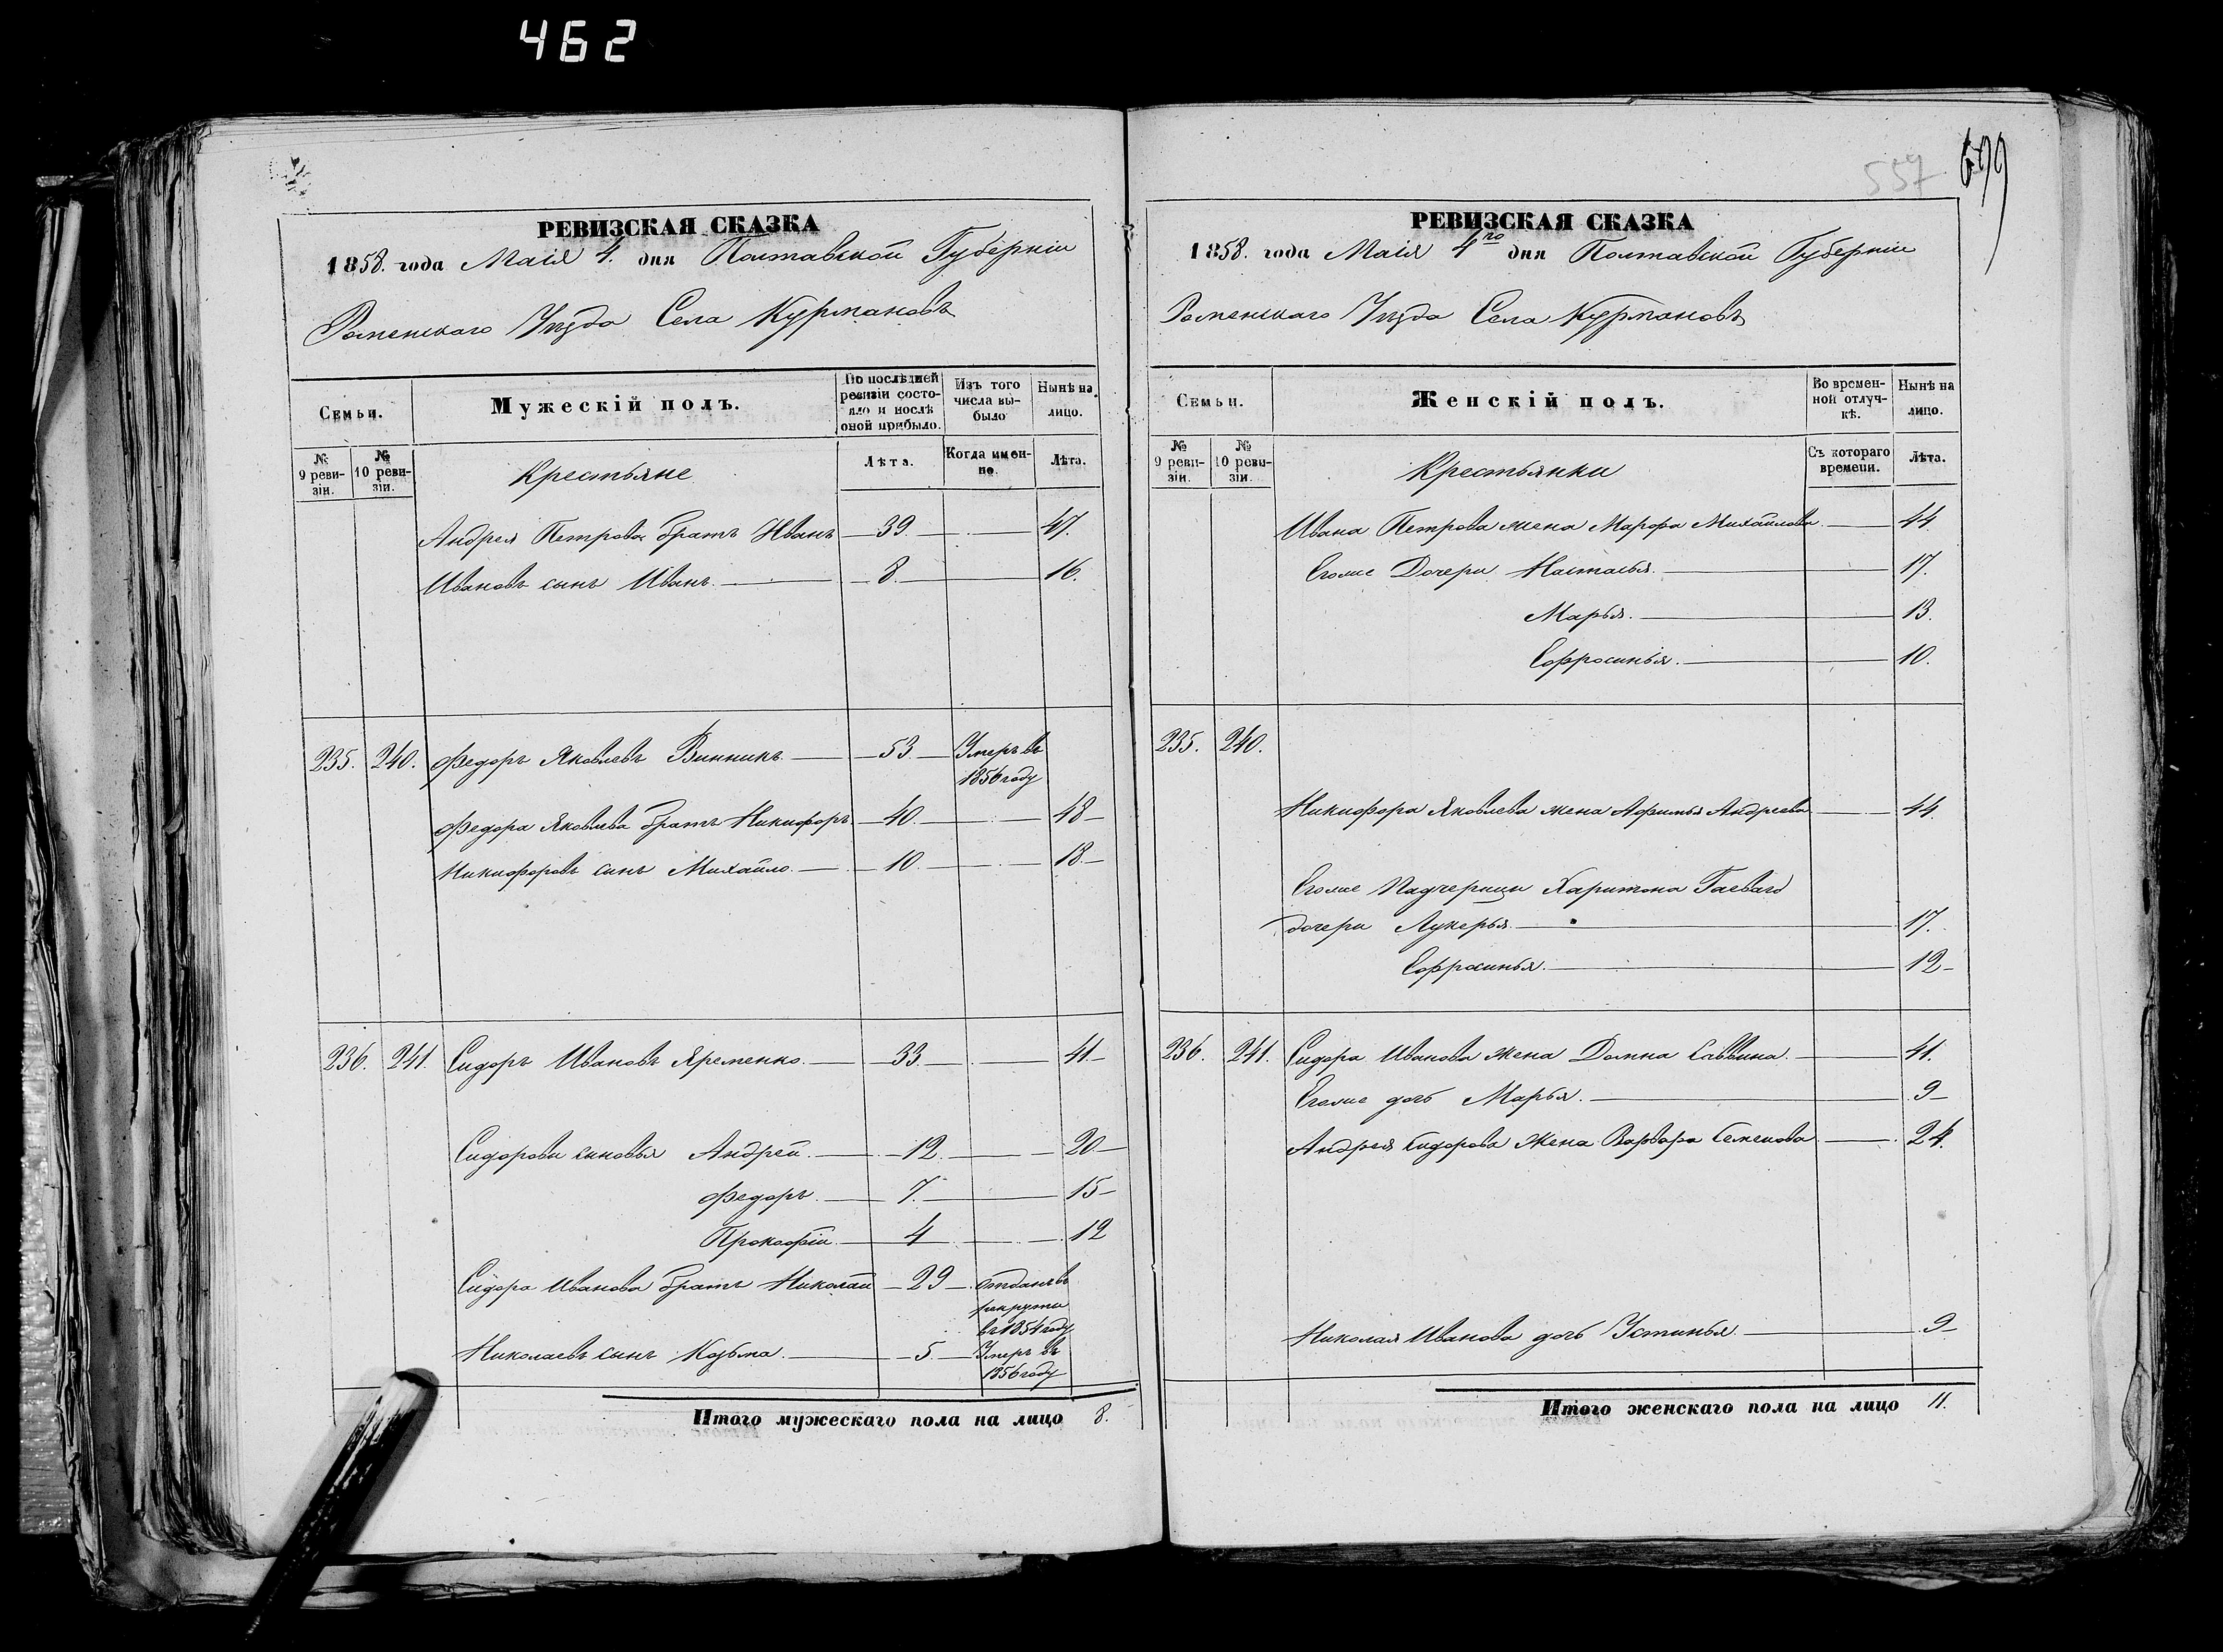 462
557
699
РЕВИЗСКАЯ СКАЗКА
1858. года Маія 4. дня Полтавской Губерніи
Роменскаго Уѣзда Села Курмановъ
Семьи.
Мужескій полъ.
По послѣдней ревизіи состояло и послѣ оной прибыло.
Изъ того числа выбыло
Нынѣ на лицо.
№ 9 ревизіи.
№ 10 ревизіи.
Крестьяне
Лѣта.
Когда именно.
Лѣта.
Андрея Петрова братъ Иванъ 39. 47.
Ивановъ сынъ Иванъ. 8. 16.
235. 240. Федоръ Яковлевъ Винникъ. 53 Умеръ въ
1856 году
Федора Яковлева братъ Никифоръ. 40. 48
Никифоровъ сынъ Михайло. 10. 18.
236. 241. Сидоръ Ивановъ Яременко. 33. 41
Сидорови синовья Андрей. 12. 20
Федоръ. 7. 15
Прокофіи. 4 12
Сидора Иванова братъ Николай 29 отданъ въ
рекруты
въ 1854 году
Николаевъ сынъ Козьма. 5. Умеръ въ
1856 году
Итого мужескаго пола на лицо 8.
РЕВИЗСКАЯ СКАЗКА
1858. года Маія 4го дня Полтавской Губерніи
Роменскаго Уѣзда Села Курмановъ
Семьи.
Женскій полъ.
Во временной отлучкѣ.
Нынѣ на лицо.
№ 9 ревизіи.
№ 10 ревизіи.
Крестьянки
Съ котораго времени.
Лѣта.
Ивана Петрова жена Марфа Михайлова. 44
Егоже Дочери Настасья. 17.
Марья. 13.
Ефросинья. 10.
235. 240.
Никифора Яковлева жена Афимья Андреева 44.
Егоже Падчерицы Харитона Гаеваго
дочери Лукерья. 17.
Ефросинья. 12
236. 241. Сидора Иванова жена Домна Саввина. 41.
Егоже дочь Марья. 9
Андрея Сидорова жена Варвара Семенова 24.
Николая Иванова дочь Устинья 9
Итого женскаго пола на лицо 11.